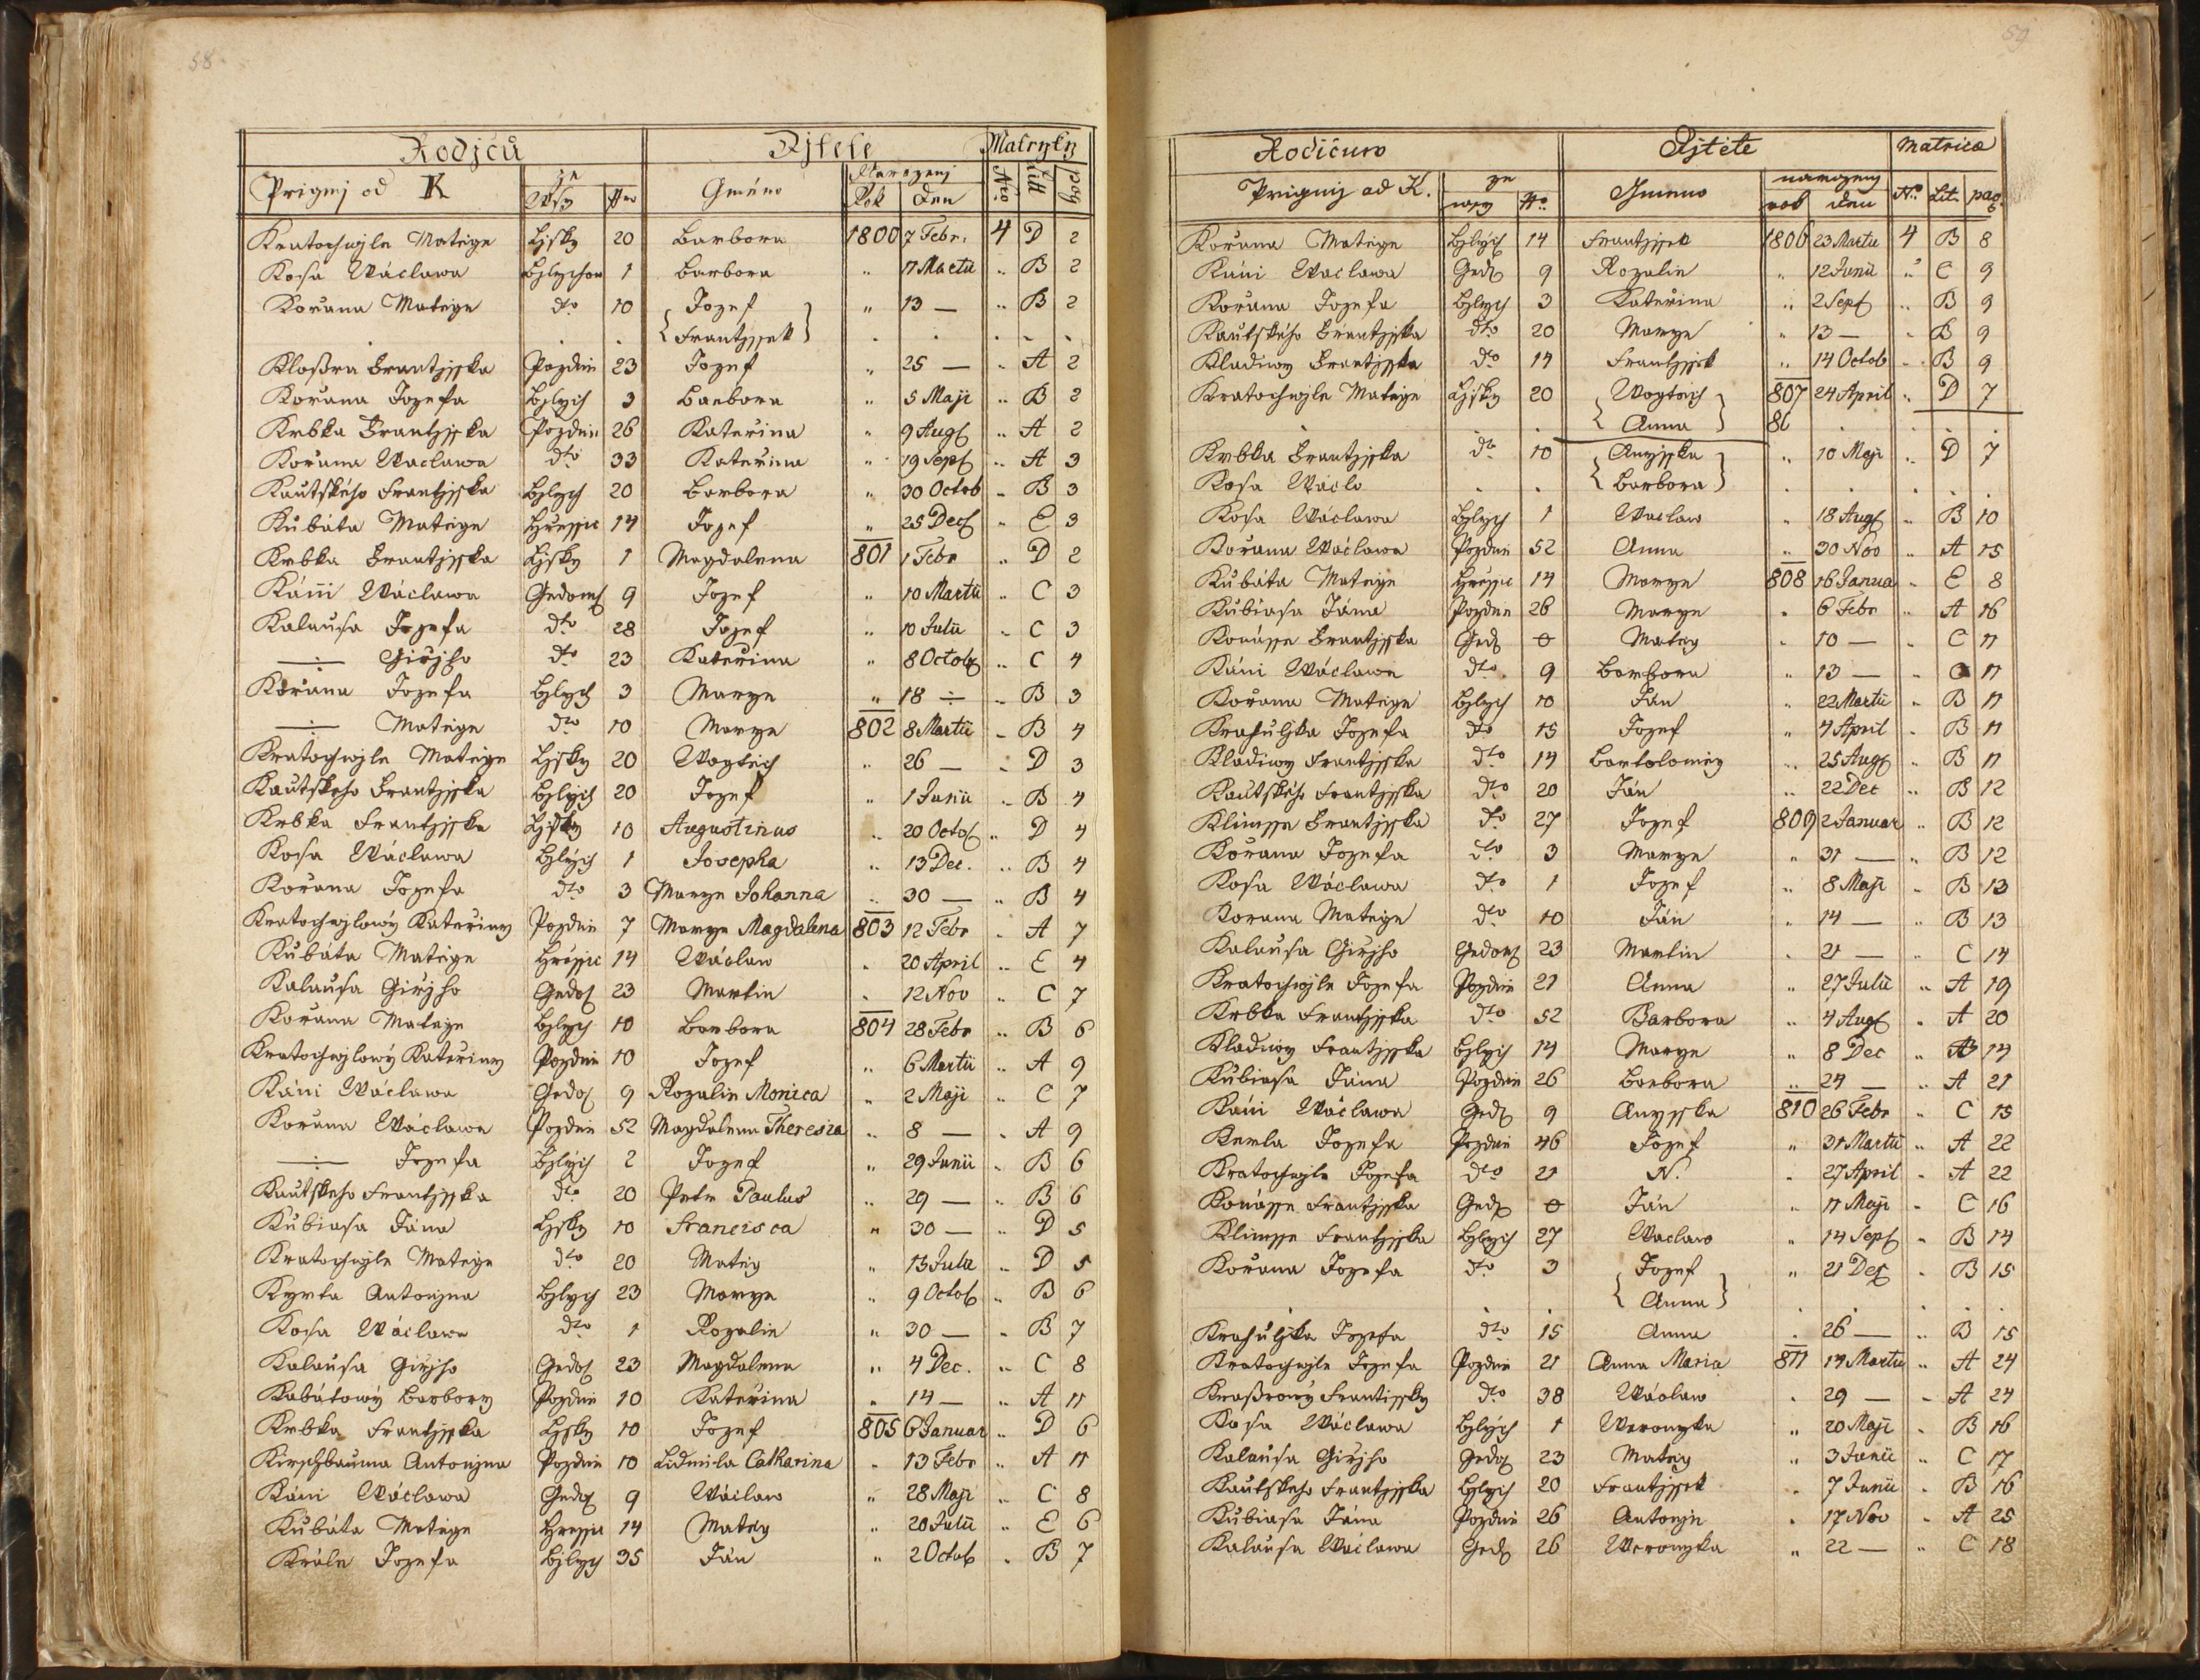 58
Rodjců Djtěte Matryky
Prigmj od K ze Wsy Nro Gméno Narozenj Rok den Nro Litt pag
Kratochwjle Matěge Ljsky 20 Barbora 1800 7 Febr. 4 D 2
Kosa Wáclawa Bjlychow 1 Barbora " 17 Martii " B 2
Kořana Matěge dto 10 { Jozef " 13 — " B 2
. . Frantjssek } . . . . .
Kloßra Frantjsska Pozdin 23 Jozef " 25 — " A 2
Kořana Jozefa Bjlych 3 Barbora " 5 Maji " B 2
Krbka Frantjsska Pozdin 26 Kateřina " 9 Aug " A 2
Kořana Waclawa dto 33 Kateřina " 19 Sept " A 3
Kautského Frantjsska Bjlych 20 Barbora " 30 Octob " B 3
Kubáta Matěge Hřessic 14 Jozef " 25 Dec " E 3
Krbka Frantjsska Ljsky 1 Magdalena 801 1 Febr " D 2
Káni Wáclawa Gedom 9 Jozef " 10 Martii " C 3
Kalausa Jozefa dto 28 Jozef " 10 Julii " C 3
—÷— Girjho dto 23 Kateřina " 8 Octob " C 4
Kořana Jozefa Bjlych 3 Marye " 18 ÷ " B 3
—÷— Matěge dto 10 Marye 802 8 Martii " B 4
Kratochwjle Matěge Ljsky 20 Wogtěch " 26 — " D 3
Kautskeho Frantjsska Bjlych 20 Jozef " 1 Junii " B 4
Krbka Frantjsska Ljsky 10 Augustinus " 20 Octob " D 4
Kosa Wáclawa Bjlých 1 Josepha " 13 Dec. " B 4
Kořana Jozefa dto 3 Marye Johanna " 30 — " B 4
Kratochwjlowý Kateřiny Pozdin 7 Marye Magdalena 803 12 Febr " A 7
Kubáta Matěge Hřessic 14 Wáclaw " 20 April " E 4
Kalausa Girjho Gedo 23 Martin " 12 Nov " C 7
Kořana Matěge Bjlych 10 Barbora 804 28 Febr " B 6
Kratochwjlowý Kateřiny Pozdin 10 Jozef " 6 Martii " A 9
Káni Wáclawa Gedo 9 Rozalie Monica " 2 Maji " C 7
Kořana Wáclawa Pozdin 52 Magdalena Theresia " 8 — " A 9
—÷— Jozefa Bjlých 2 Jozef " 29 Junii " B 6
Kautskeho Frantjsska dto 20 Petr Paulus " 29 — " B 6
Kubiasa Jána Ljsky 10 Francisca " 30 — " D 5
Kratochwjle Matěge dto 20 Matěg " 13 Julii " D 5
Kyrta Antonjna Bjlych 23 Marye " 9 Octob " B 6
Kosa Wáclawa dto 1 Rozalie " 30 — " B 7
Kalausa Girjho Gedo 23 Magdalena " 4 Dec. " C 8
Kabátowý Barbory Pozdin 10 Kateřina " 14 — " A 11
Krbka Frantjsska Ljsky 10 Jozef 805 6 Januar " D 6
Kirschbauma Antonjna Pozdin 10 Ludmila Catharina " 13 Febr " A 11
Káni Wáclawa Gedo 9 Wáclaw " 28 Maji " C 8
Kubáta Matěge Hřessic 14 Matěg " 20 Julii " E 6
Krále Jozefa Bjlych 35 Ján " 2 Octob " B 7
59
Rodičuw Djtěte Matricæ
Prigmj od K. ze wsy Nro Gmeno narozeny rok den No Lit. pag.
Kořana Matěge Bjlých 14 Frantjssek 1806 23 Martii 4 B 8
Káni Waclawa Ged 9 Rozalie " 12 Junii " C 9
Kořana Jozefa Bjlých 3 Kateřina " 2 Sept " B 9
Kautského Frantjsska dto 20 Marye " 13 — " B 9
Kladiwy Frantjsska do 14 Frantjssek " 14 Octob " B 9
Kratochwjle Matěge Ljsky 20 { Wogtěch 807 24 April " D 7
. . Anna } 8 . . . .
Krbka Frantjsska do 10 { Anjsska " 10 Maji " D 7
Kosa Wáclo . . Barbora } . . . . .
Kosa Wáclawa Bjlých 1 Waclaw " 18 Aug " B 10
Kořana Wáclawa Pozdin 52 Anna " 30 Nov " A 15
Kubáta Matěge Hřessic 14 Marye 808 16 Janua " E 8
Kubiasa Jána Pozdin 26 Marye " 6 Febr " A 16
Konásse Frantjsska Ged 0 Matěg " 10 — " C 11
Káni Wáclawa dto 9 Barbora " 13 — " C 11
Kořana Matěge Bjlych 10 Ján " 22 Martii " B 11
Krahuljka Jozefa dto 15 Jozef " 4 April " B 11
Kladiwy Frantjsska dto 14 Bartoloměg " 25 Aug " B 11
Kautského Frantjsska dto 20 Ján " 22 Dec " B 12
Klimsse Frantjsska do 27 Jozef 809 2 Januar " B 12
Kořana Jozefa dto 3 Marye " 31 — " B 12
Kosa Wáclawa dto 1 Jozef " 8 Maji " B 13
Kořana Matěge dto 10 Ján " 14 — " B 13
Kalausa Girjho Gedom 23 Martin " 21 — " C 14
Kratochwjle Jozefa Pozdin 21 Anna " 27 Julii " A 19
Krbka Frantjsska dto 52 Barbora " 4 Aug " A 20
Kladiwy Frantjsska Bjlých 14 Marye " 8 Dec " B 14
Kubiasa Jána Pozdin 26 Barbora " 24 — " A 21
Káni Wáclawa Ged 9 Anjsska 810 26 Febr " C 15
Kerla Jozefa Pozdin 46 Jozef " 31 Martii " A 22
Kratochwjle Jozefa dto 21 N. " 27 April " A 22
Konásse Frantjsska Ged 0 Ján " 11 Maji " C 16
Klimsse Frantjsska Bjlych 27 Waclaw " 14 Sept " B 14
Kořana Jozefa dto 3 { Jozef " 21 Dec " B 15
. . Anna } . . . . .
Krahuljka Jozefa dto 15 Anna " 26 — " B 15
Kratochwjle Jozefa Pozdin 21 Anna Maria 811 14 Martii " A 24
Kroßrowý Frantissky do 38 Wáclaw " 29 — " A 24
Kosa Wáclawa Bjlých 1 Weronyka " 20 Maji " B 16
Kalausa Girjho Gedo 23 Matěg " 3 Junii " C 17
Kautskeho Frantjsska Bjlych 20 Frantjssek " 7 Junii " B 16
Kubiasa Jána Pozdin 26 Antonjn " 17 Nov " A 25
Kalausa Wáclawa Ged 26 Weronyka " 22 — " C 18